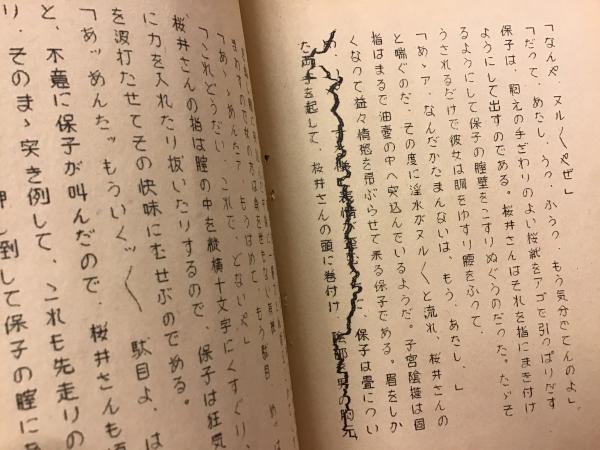 「なんや、ヌル〱やぜ」
「だって、あたし、うっ、ふうっ、もう気分でてんのよ」
保子は、胸元の手ざわりのよい桜紙をアゴで引っぱりだす
ようにして出すのである。桜井さんはそれを指にまき付け
るようにして保子の腟壁をこすりぬぐうのだった。たゞそ
うされるだけで彼女は胴をゆすり腰をふって、
「あゝア、なんだかたまんないは、もう、あたし、」
と喘ぐのだ、その度に淫水がヌル〱と流れ、桜井さんの
指はまるで油壷の中へ突込んでいるようだ。子宮陰挺は固
くなって益々情慾を昂ぶらせて来る保子である。眉をしか
保子は畳につい
た両手を起して、桜井さんの頭に巻付け
もうはめて、もう駄目
「あゝあんたア、これで、どないや」
「これどうだい、
桜井さんの指は腟の中を縦横十文字にくすぐり、
に力を入れたり抜いたりするので、保子は狂気
を波打たせてその快味にむせぶのである。
「あッあんたッもういくッ〱 駄目よ、は
と、不意に保子が叫んだので、桜井さんも
り、そのまゝ突き倒して、これも先走りの
倒して保子の腟に